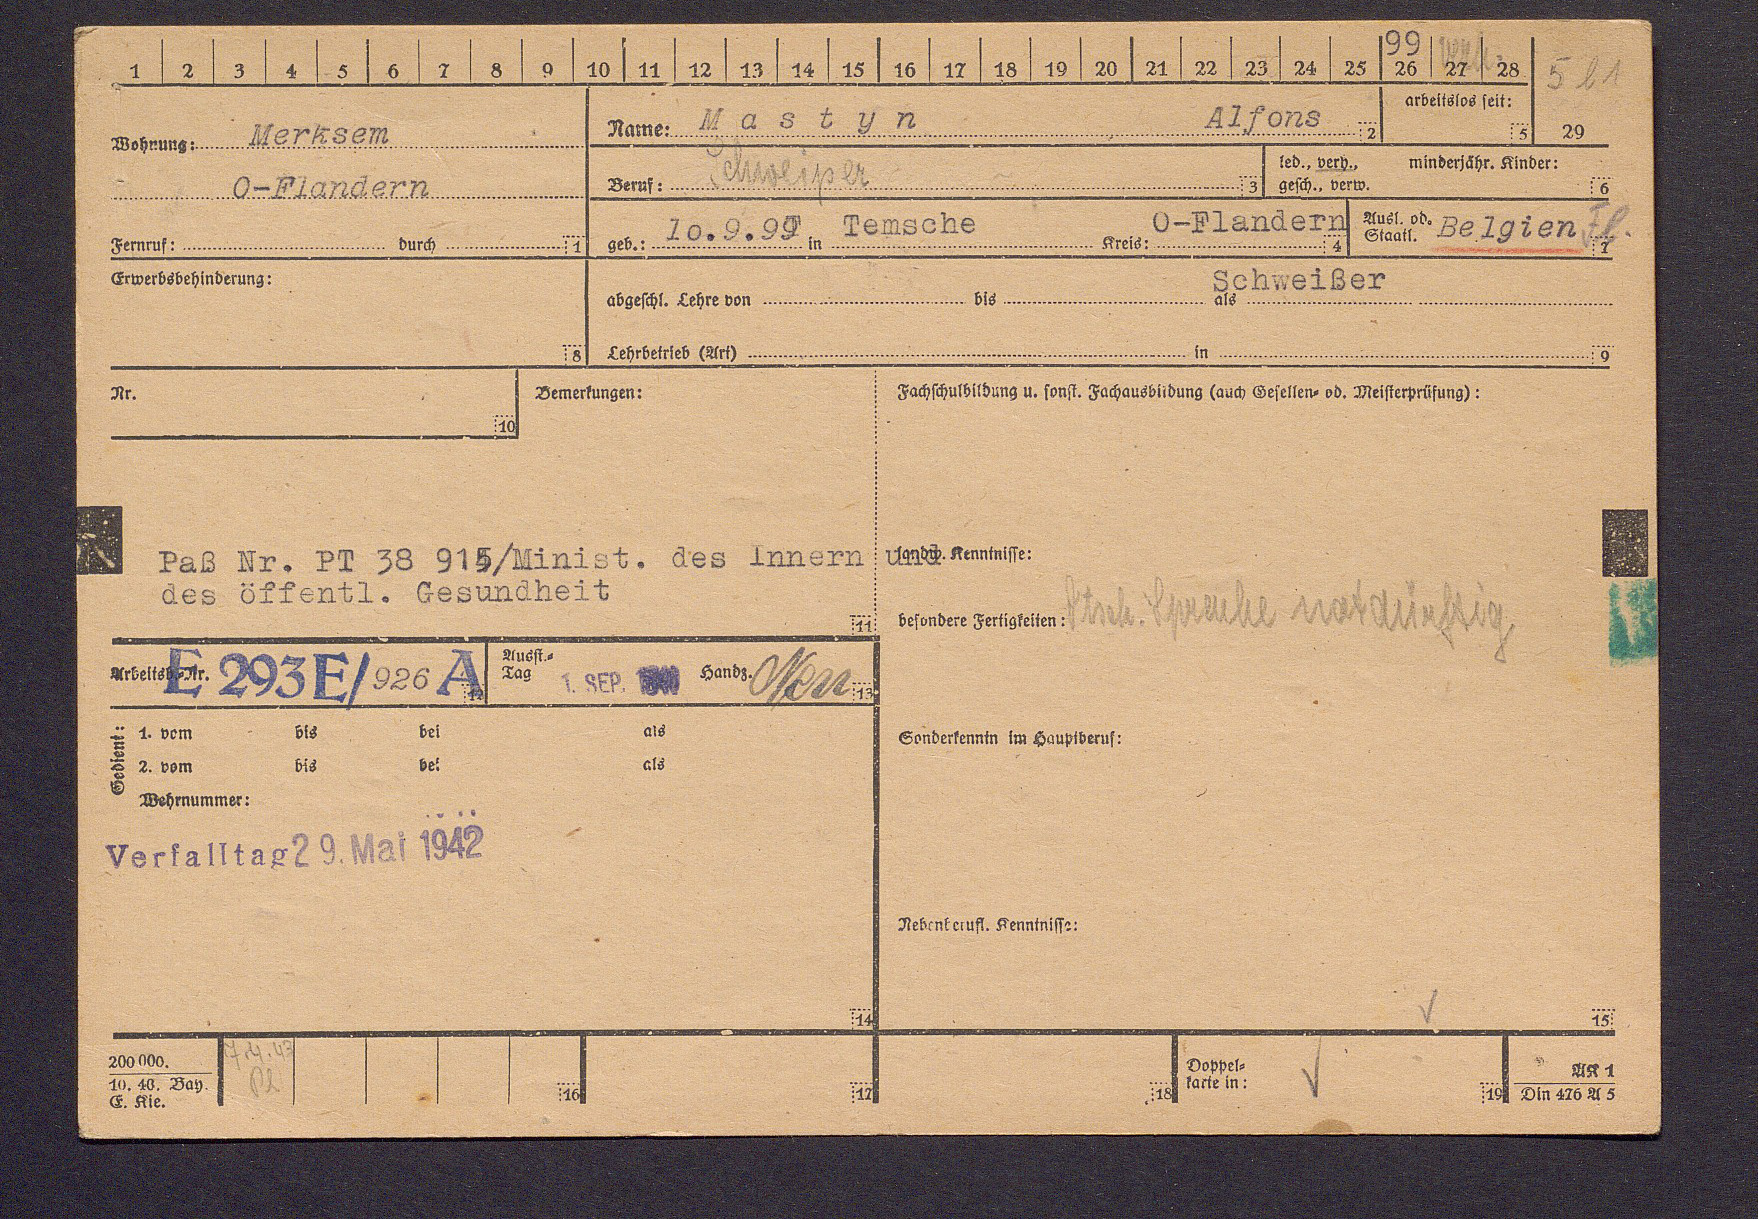 1 2 3 4 5 6 7 8 9 10 11 12 13 14 15 16 17 18 19 20 21 22 23 24 25 26 27 28
99
5 b 1
Wohnung: Merksem
O-Flandern
Fernruf: durch 1
Name: Mastyn Alfons 2
arbeitslos seit: 5
29
Beruf: Schweißer 3
led., verh., gesch., verw.
minderjähr. Kinder: 6
geb.: 10.9.99 in Temsche Kreis: O-Flandern 4
Ausl. od. Staatl. Belgien Fl. 7
Erwerbsbehinderung: 8
abgeschl. Lehre von bis als Schweißer
Lehrbetrieb (Art) in 9
Nr. 10
Bemerkungen:
Fachschulbildung u. sonst. Fachausbildung (auch Gesellen- od. Meisterprüfung):
Paß Nr. PT 38 915/Minist. des Innern und
des öffentl. Gesundheit
11
landw. Kenntnisse:
besondere Fertigkeiten: Dtsch. Sprache notdürftig
Arbeitsb.-Nr. E 293 E/926 A 12
Ausst.-Tag 1. SEP. Handz. 13
Gedient:
1. vom bis bei als
2. vom bis bei als
Wehrnummer:
Sonderkenntn im Hauptberuf:
Verfalltag 29. Mai 1942
Nebenberufl. Kenntnisse:
14
15
200 000.
10. 40. Bay.
E. Kie.
7.4.43
Pl
16
17
18
Doppel-
karte in:
19
AK 1
Din 476 A 5